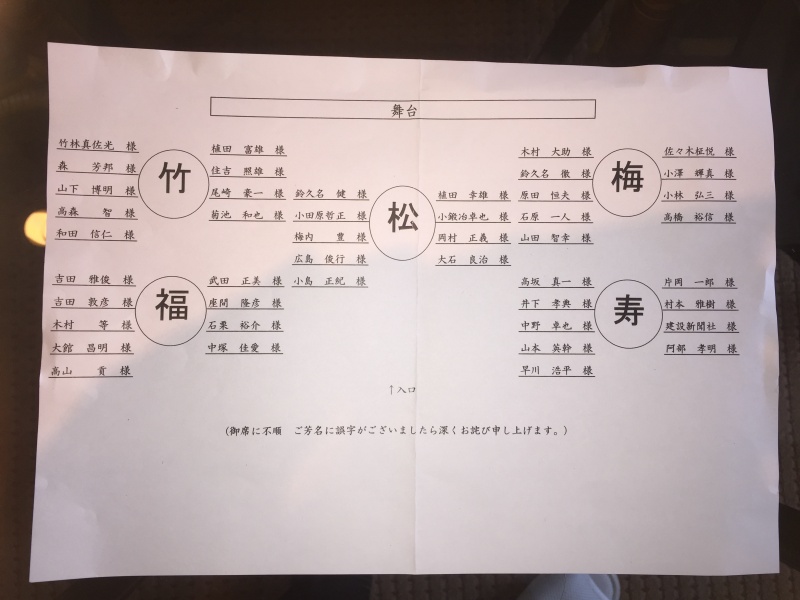 舞台
竹
竹林真佐光 様
森 芳邦 様
山下 博明 様
高森 智 様
和田 信仁 様
植田 富雄 様
住吉 照雄 様
尾崎 豪一 様
菊池 和也 様
松
鈴久名 健 様
小田原哲正 様
梅内 豊 様
広島 俊行 様
小島 正紀 様
植田 幸雄 様
小鍛冶卓也 様
岡村 正義 様
大石 良治 様
梅
木村 大助 様
鈴久名 徹 様
原田 恒夫 様
石原 一人 様
山田 智幸 様
佐々木柾悦 様
小澤 輝真 様
小林 弘三 様
高橋 裕信 様
福
吉田 雅俊 様
吉田 敦彦 様
木村 等 様
大舘 昌明 様
高山 貢 様
武田 正美 様
座間 隆彦 様
石栗 裕介 様
中塚 佳愛 様
寿
高坂 真一 様
井下 孝典 様
中野 卓也 様
山本 英幹 様
早川 浩平 様
片岡 一郎 様
村本 雅樹 様
建設新聞社 様
阿部 孝明 様
↑入口
（御席に不順 ご芳名に誤字がございましたら深くお詫び申し上げます。）